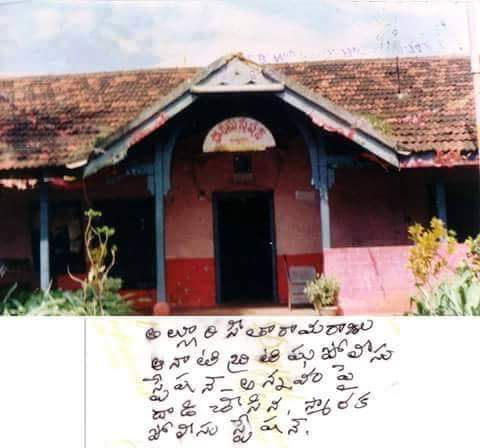 అల్లూరి సీతారామరాజు
ఆనాటి బ్రిటిషు పోలీసు
స్టేషన్ - అన్నవరం పై
దాడి చేసిన, స్మారక
పోలీసు స్టేషన్.